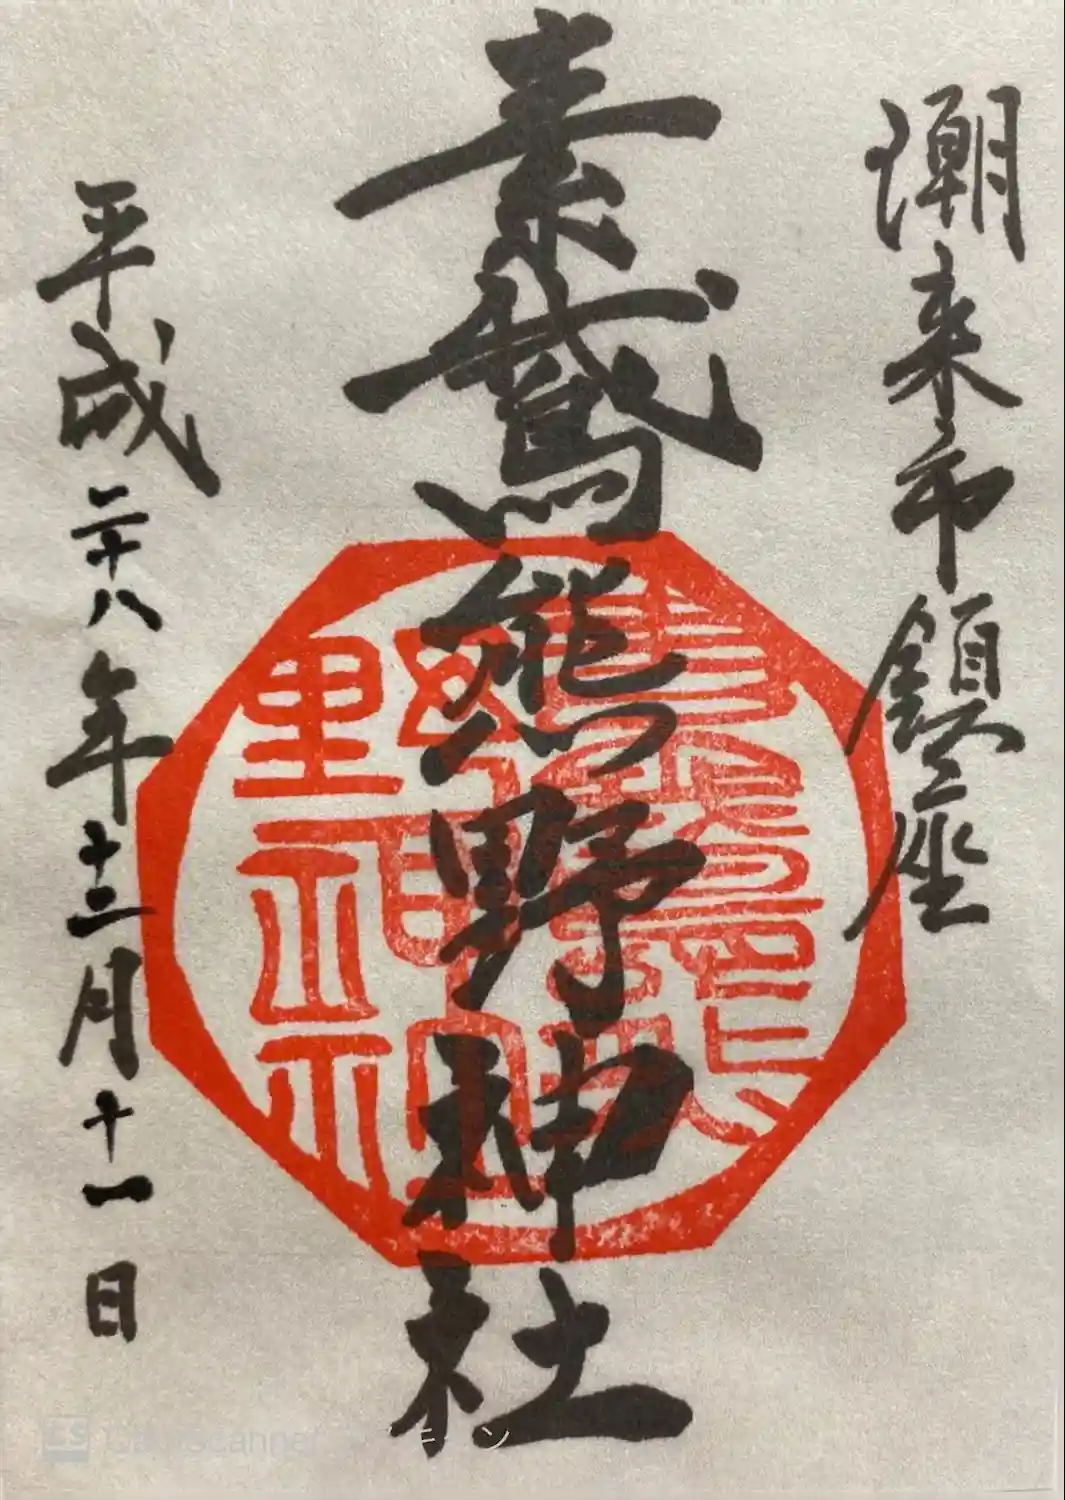 潮来市鎮座
素鵞熊野神社
平成二十八年十二月十一日
素鵞熊
野神社
CS CamScanner でスキャン